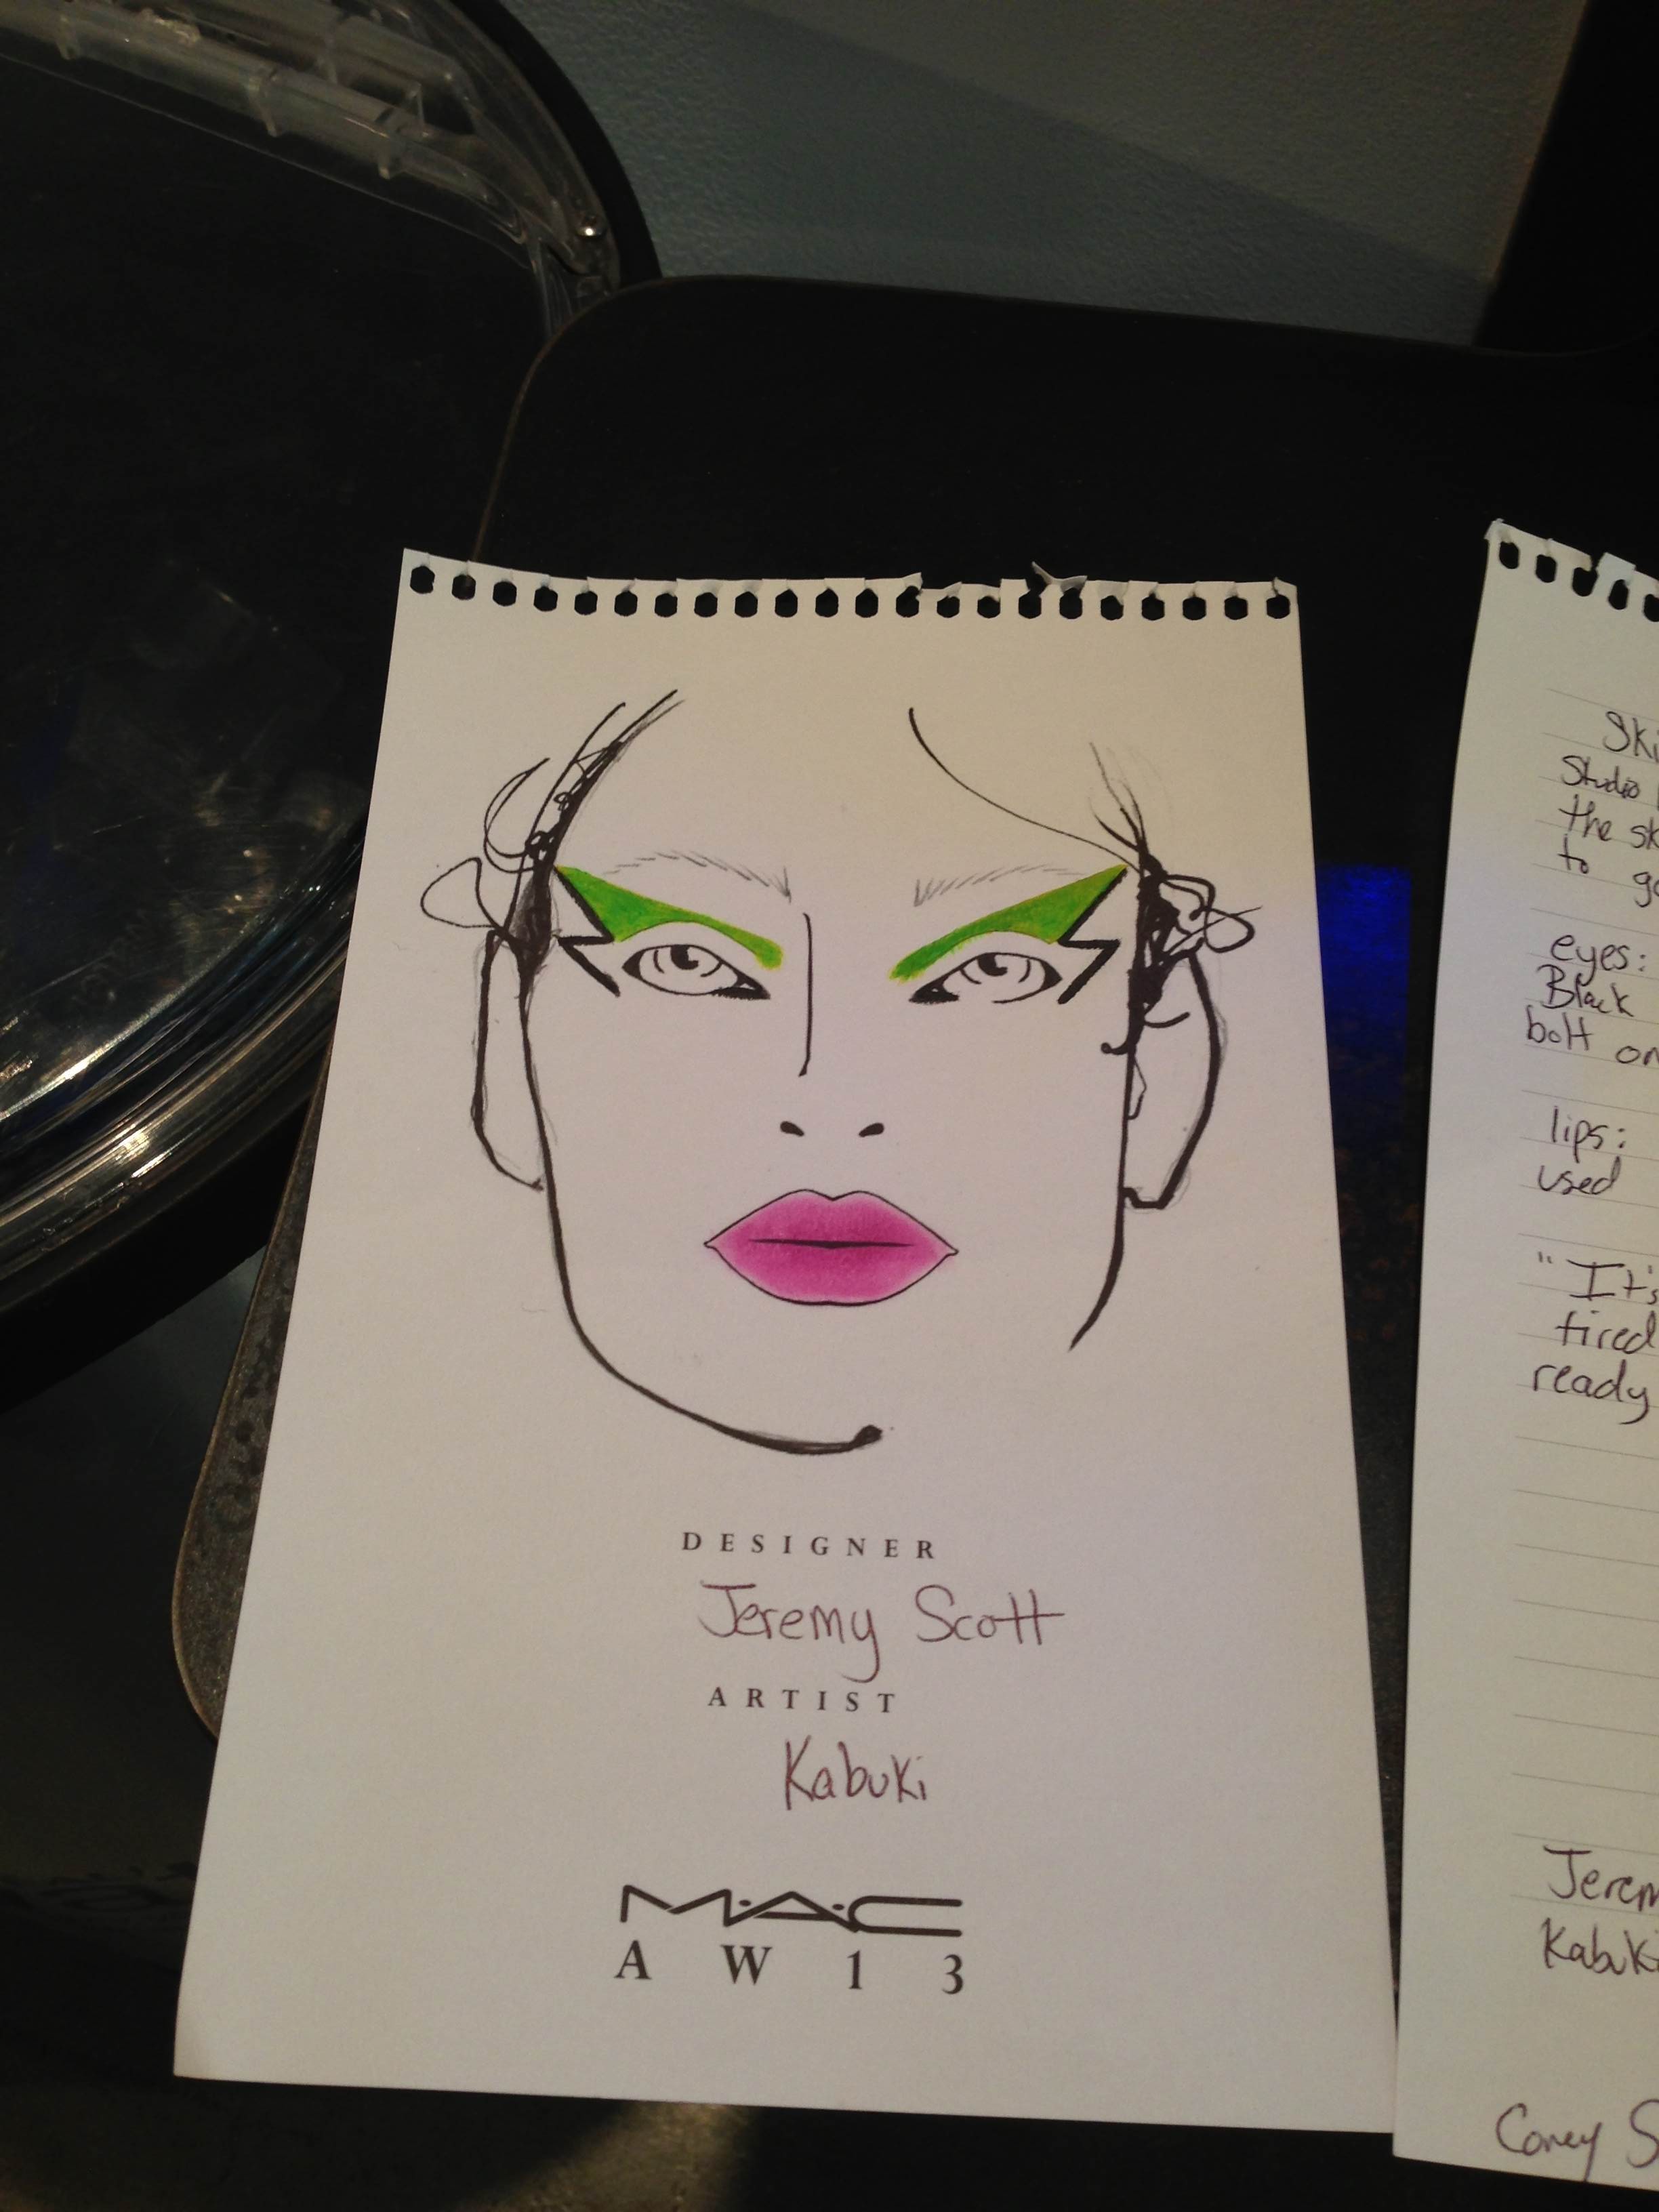 DESIGNER
Jeremy Scott
ARTIST
Kabuki
M·A·C
AW13
Studio
the
to
eyes:
Black
bolt
lips:
used
"It's
tired
ready
Kabuki